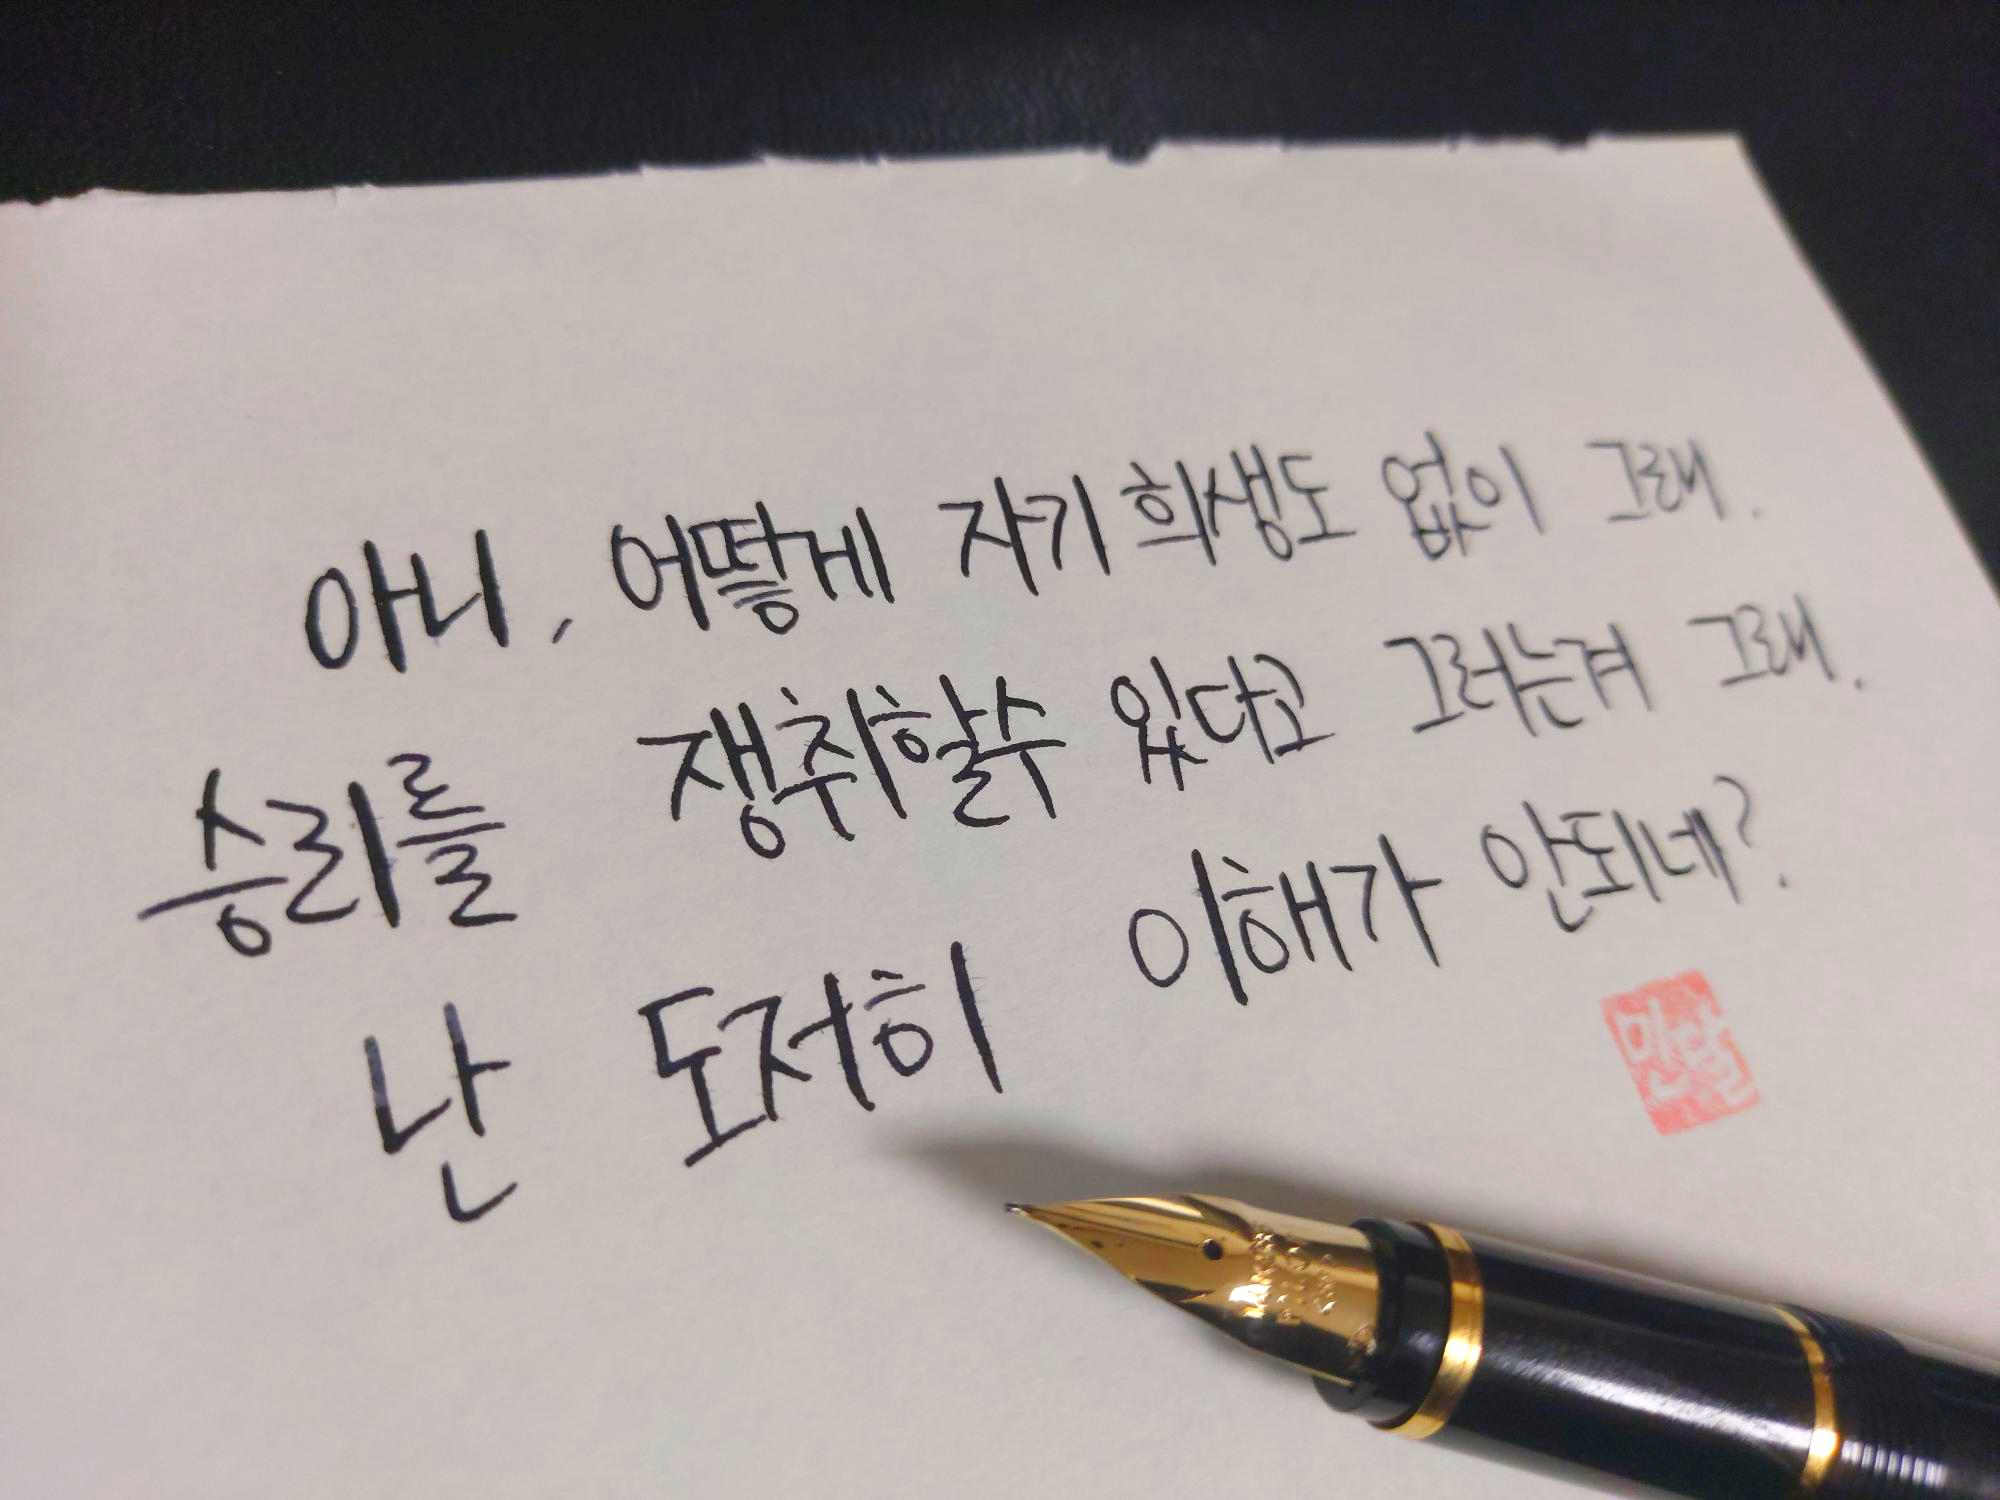 아니, 어떻게 자기 희생도 없이 그래.
승리를 쟁취할수 있다고 그러는겨 그래.
난 도저히 이해가 안되네?